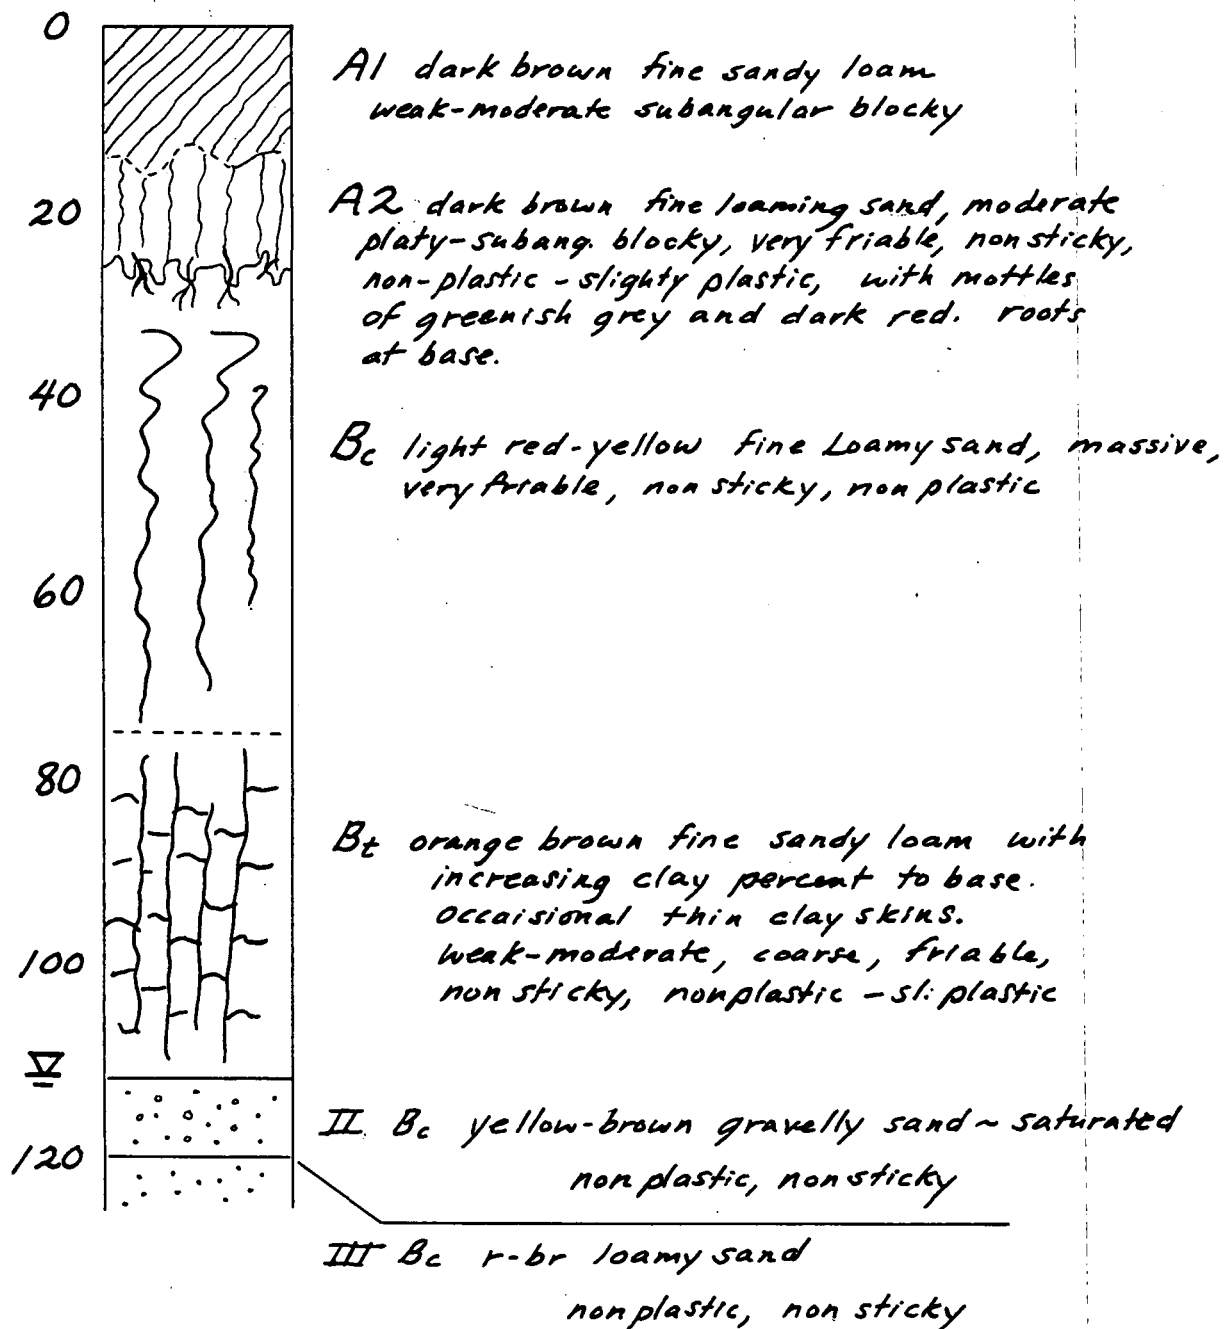 0
A1 dark brown fine sandy loam
weak-moderate subangular blocky
20
A2 dark brown fine loaming sand, moderate
platy-subang. blocky, very friable, non sticky,
non-plastic - slighty plastic, with mottles
of greenish grey and dark red. roots
at base.
40
Bc light red-yellow fine Loamy sand, massive,
very friable, non sticky, non plastic
60
80
Bt orange brown fine sandy loam with
increasing clay percent to base.
occaisional thin clay skins.
weak-moderate, coarse, friable,
non sticky, nonplastic - sl. plastic
100
II Bc yellow-brown gravelly sand ~ saturated
non plastic, non sticky
120
III Bc r-br loamy sand
nonplastic, non sticky